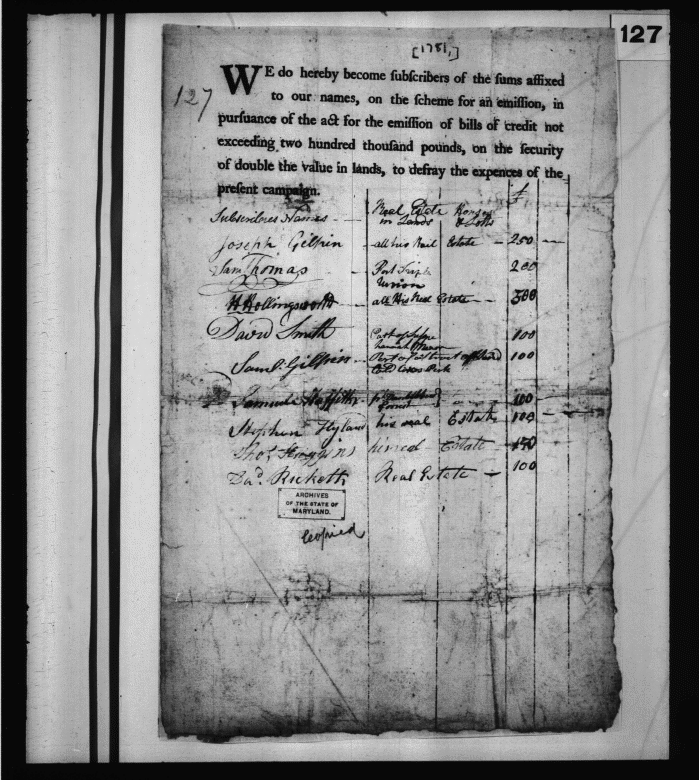 127
[1781,]
127
WE do hereby become subscribers of the sums affixed
to our names, on the scheme for an emission, in
pursuance of the act for the emission of bills of credit not
exceeding two hundred thousand pounds, on the security
of double the value in lands, to defray the expences of the
present campaign.
Subscribers Names Real Estate in Lands Houses & Lots £
Joseph Gilpin all his Real Estate 250
Saml Thomas Part Union 200
H Hollingsworth all His Real Estate 300
David Smith Part of 100
Saml. Gilpin Part of a tract 100
Samuel 100
Stephen Hyland his real Estate 100
Thos. his real Estate 150
Bad. Ricketts Real Estate 100
ARCHIVES
OF THE STATE OF
MARYLAND.
Copied